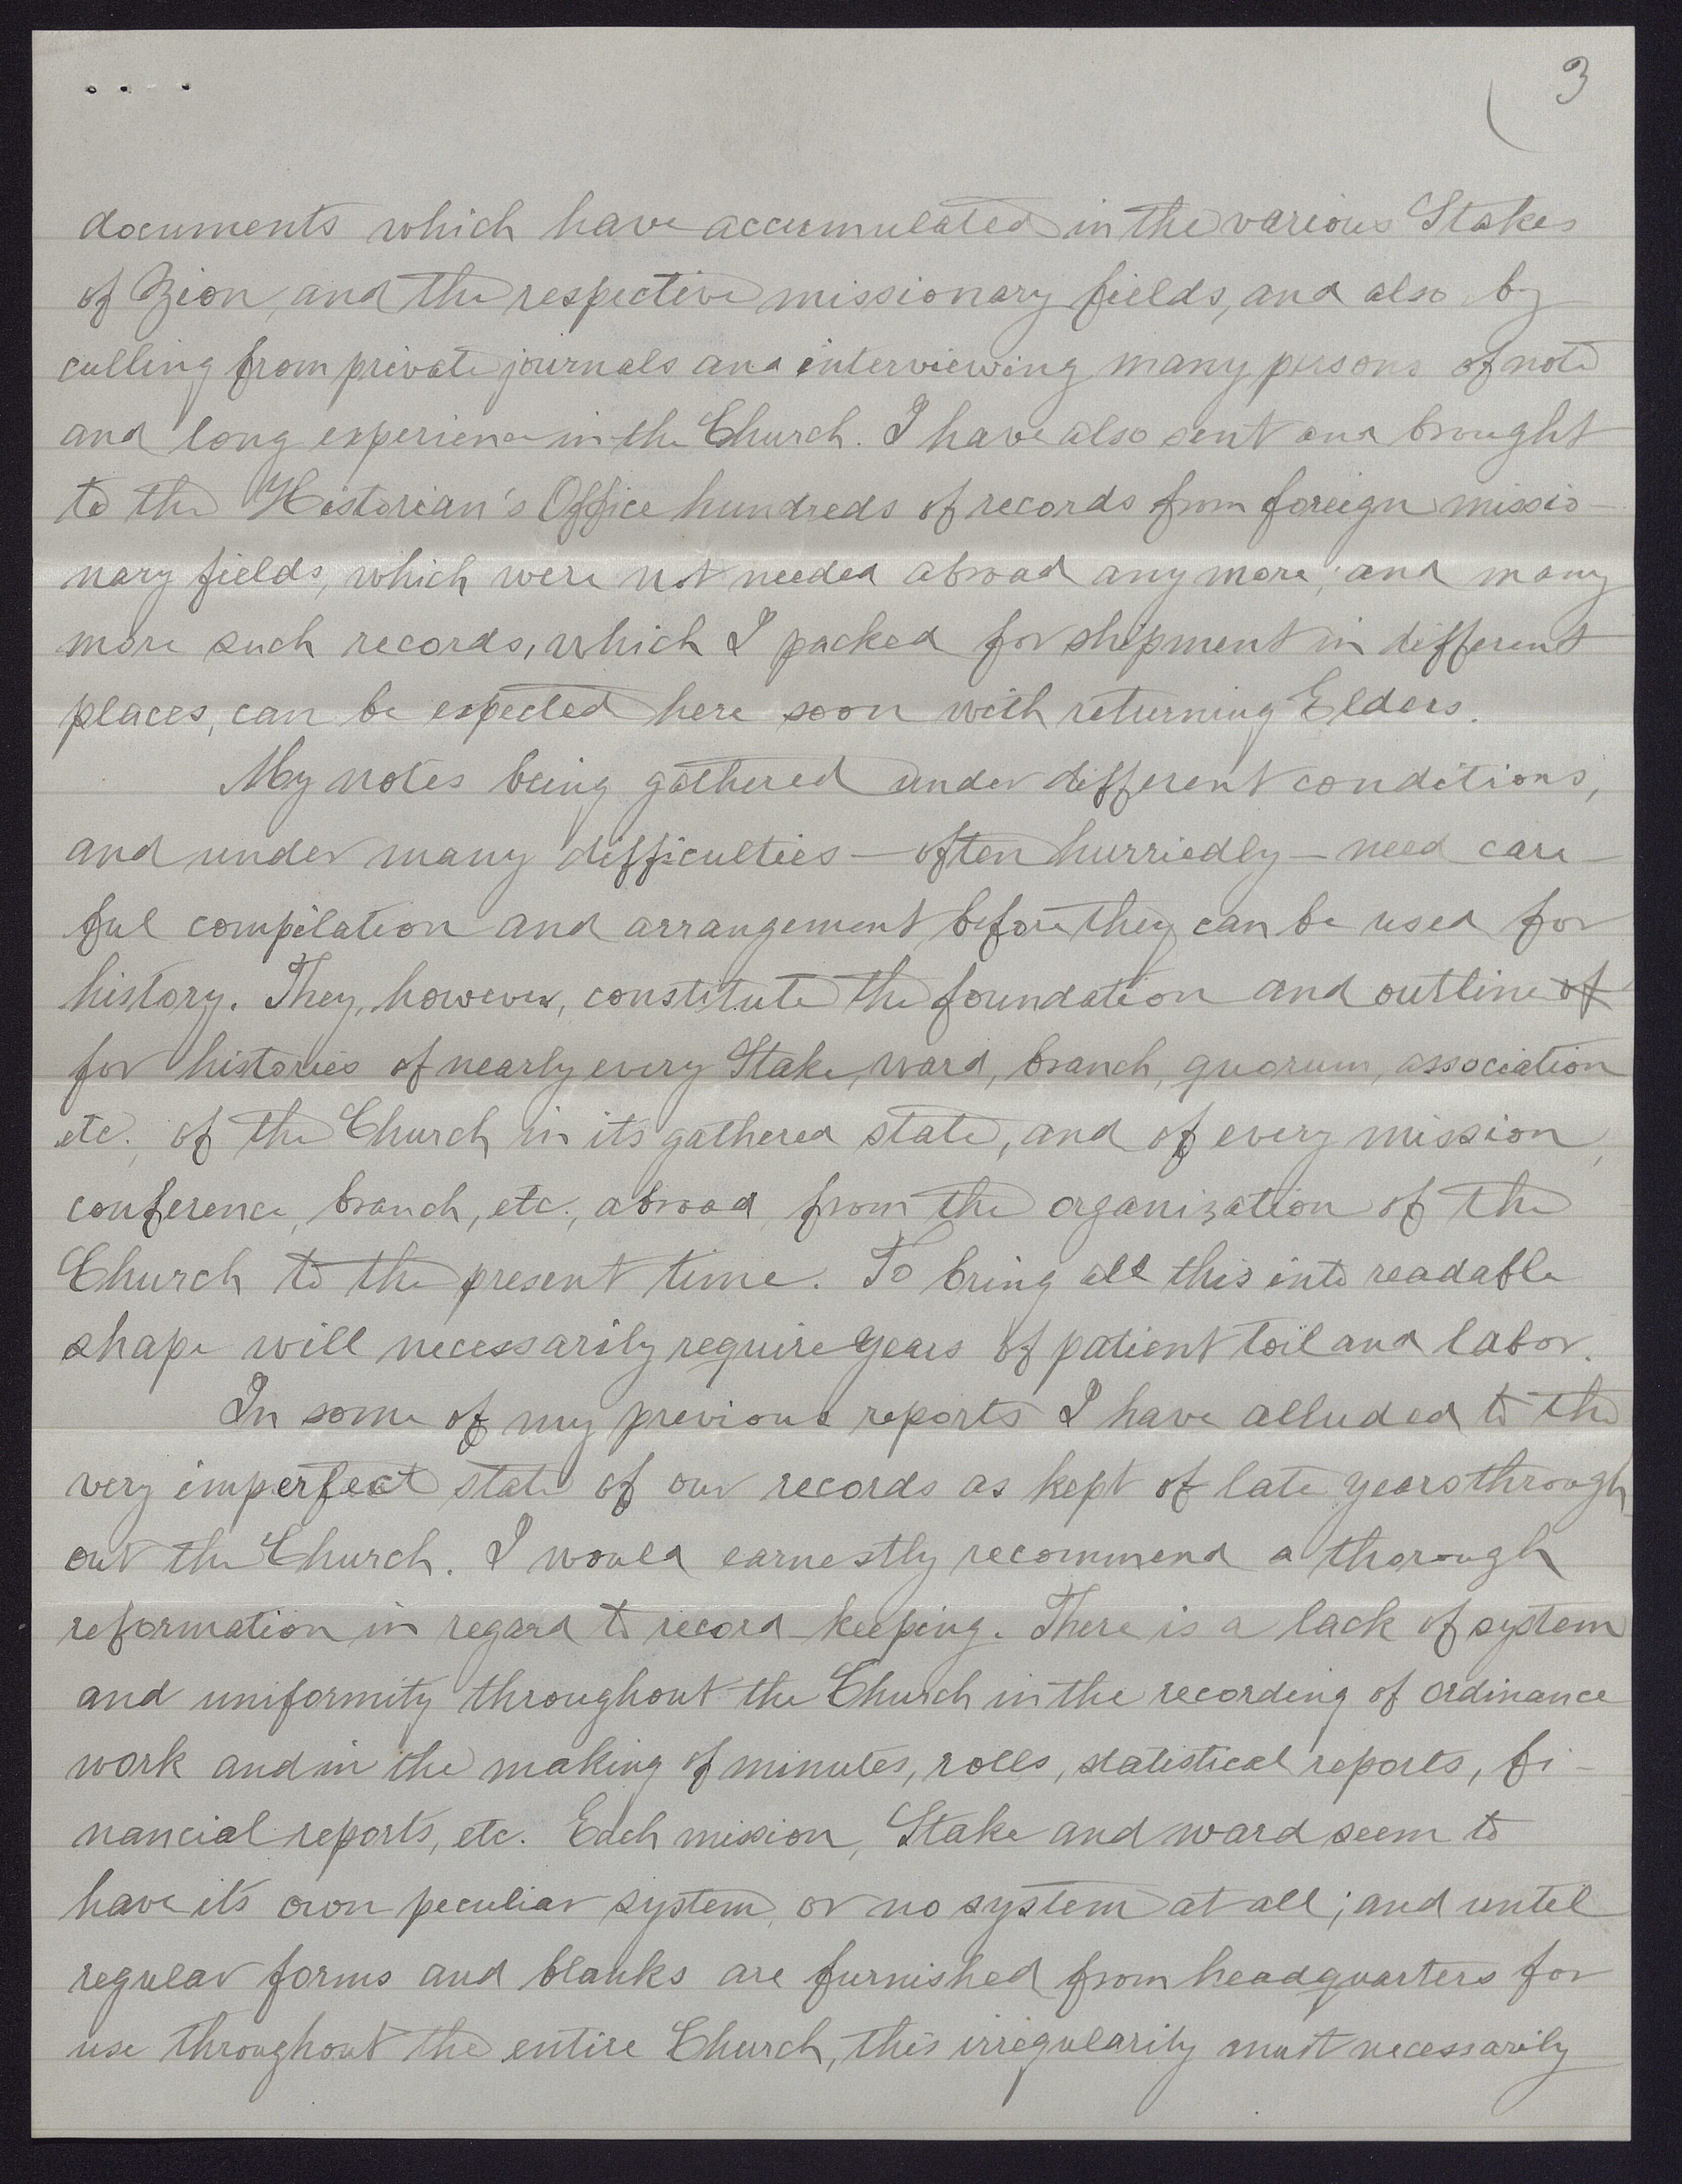 3
documents which have accumulated in the various Stakes
of Zion, and the respective missionary fields, and also by
culling from private journals and interviewing many persons of note
and long experience in the Church. I have also sent and brought
to the Historian's Office hundreds of records from foreign missio-
nary fields, which were not needed abroad any more; and many
more such records, which I packed for shipment in different
places, can be expected here soon with returning Elders.
My notes being gathered under different conditions,
and under many difficulties — often hurriedly — need care-
ful compilation and arrangement before they can be used for
history. They, however, constitute the foundation and outline of
for histories of nearly every Stake, ward, branch, quorum, association
etc., of the Church in its gathered state, and of every mission,
conference, branch, etc., abroad, from the organization of the
Church to the present time. To bring all this into readable
shape will necessarily require years of patient toil and labor.
In some of my previous reports I have alluded to the
very imperfect state of our records as kept of late years through
out the Church. I would earnestly recommend a thorough
reformation in regard to record-keeping. There is a lack of system
and uniformity throughout the Church in the recording of ordinance
work and in the making of minutes, rolls, statistical reports, fi-
nancial reports, etc. Each mission, Stake and ward seem to
have its own peculiar system, or no system at all; and until
regular forms and blanks are furnished from headquarters for
use throughout the entire Church, this irregularity must necessarily